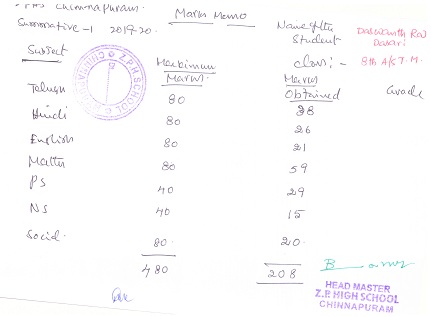 ZPHS Chinnapuram. Marks Memo
Summative-1 2019-20. Name of the Student Daswanth Raj Davari
Class:- 8th A/S T.M.
Subject Maximum Marks. Marks Obtained Grade
Telugu 80 28
Hindi 80 26
English 80 21
Maths 80 59
PS 40 29
NS 40 15
Social. 80. 20.
480 208
HEAD MASTER
Z.P. HIGH SCHOOL
CHINNAPURAM